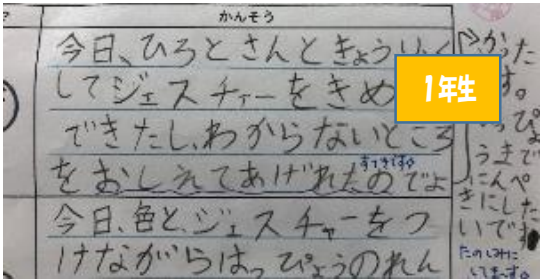 かんそう
今日、ひろとさんときょう
してジェスチャーをきめ
できたし、わからないところ
をおしえてあげれたのでよ
かった
す。
今日、色と、ジェスチャーをつ
けながらはっぴょうのれん
1年生
すてきです。
うきで
にんぺ
きにした
いです
たのしみに
しています。